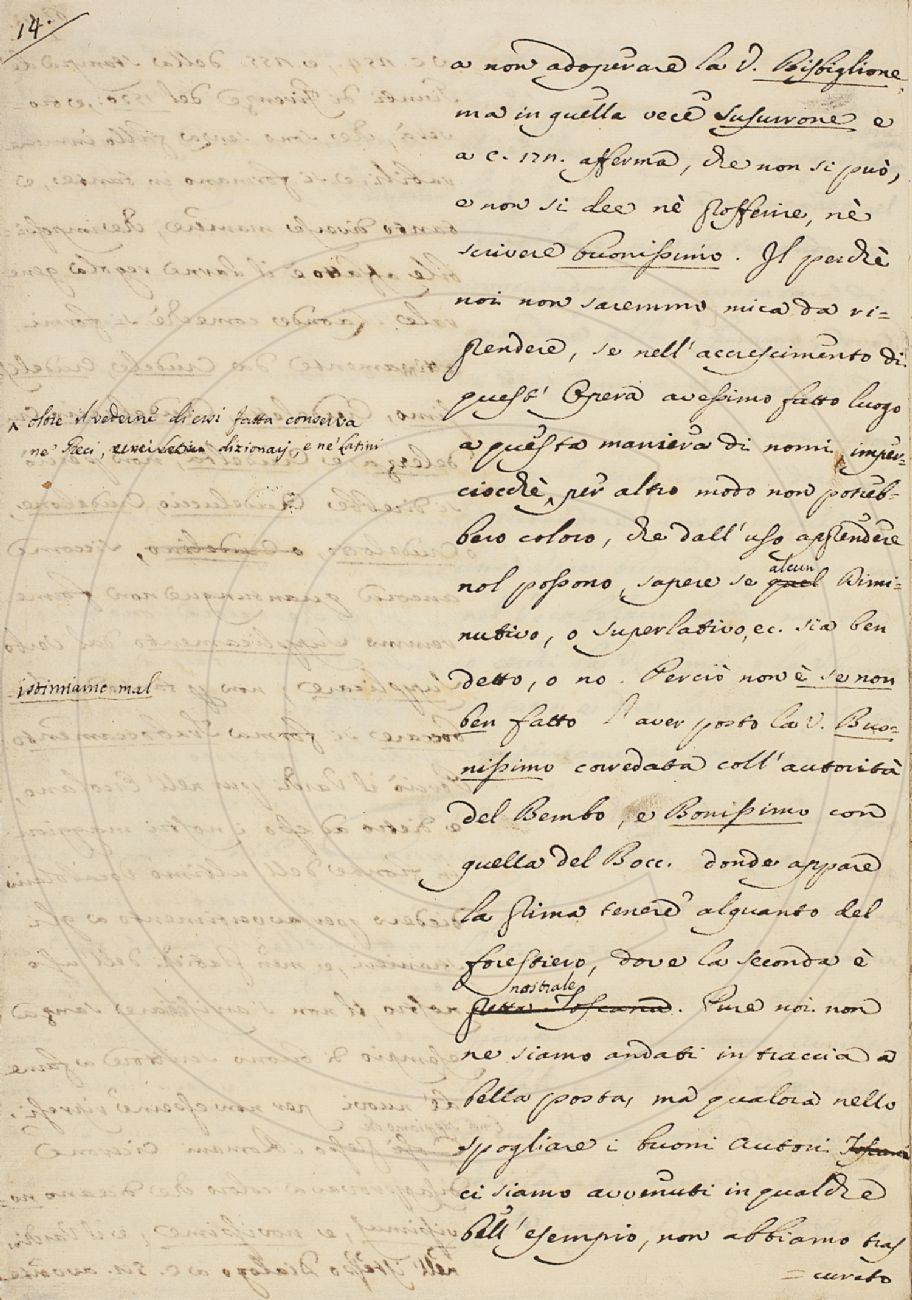 14.
a non adoperare la V. Bisbiglione,
ma in quella vece susurrone e
a c. 171. afferma, che non si può,
e non si dee nè profferire, nè
scrivere buonissimo. Il perchè
noi non saremmo mica da ri=
prendere, se nell' accrescimento di
quest' Opera avessimo fatto luogo
a questa maniera di nomi, imper=
ciocchè ^ per altro modo non potreb=
bero coloro, che dall' uso apprendere
nol possono, sapere se alcun Dimi=
nutivo, o superlativo, ec. sia ben
detto, o no. Perciò non è se non
ben fatto l' aver posto la V. Buo=
nissimo corredata coll' autorità
del Bembo, e Bonissimo con
quella del Bocc. donde appare
la prima tenere alquanto del
forestiero, dove la seconda è
nostrale
pretta Toscana. Pure noi non
ne siamo andati in traccia a
bella posta, ma qualora nello
spogliare i buoni Autori Toscani
ci siamo avvenuti in qualche
bell' esempio, non abbiamo tras
= curato
^ oltre il vedersene di essi fatta conserva
ne' Greci, dizionarj, e ne' Latini
istimiamo mal